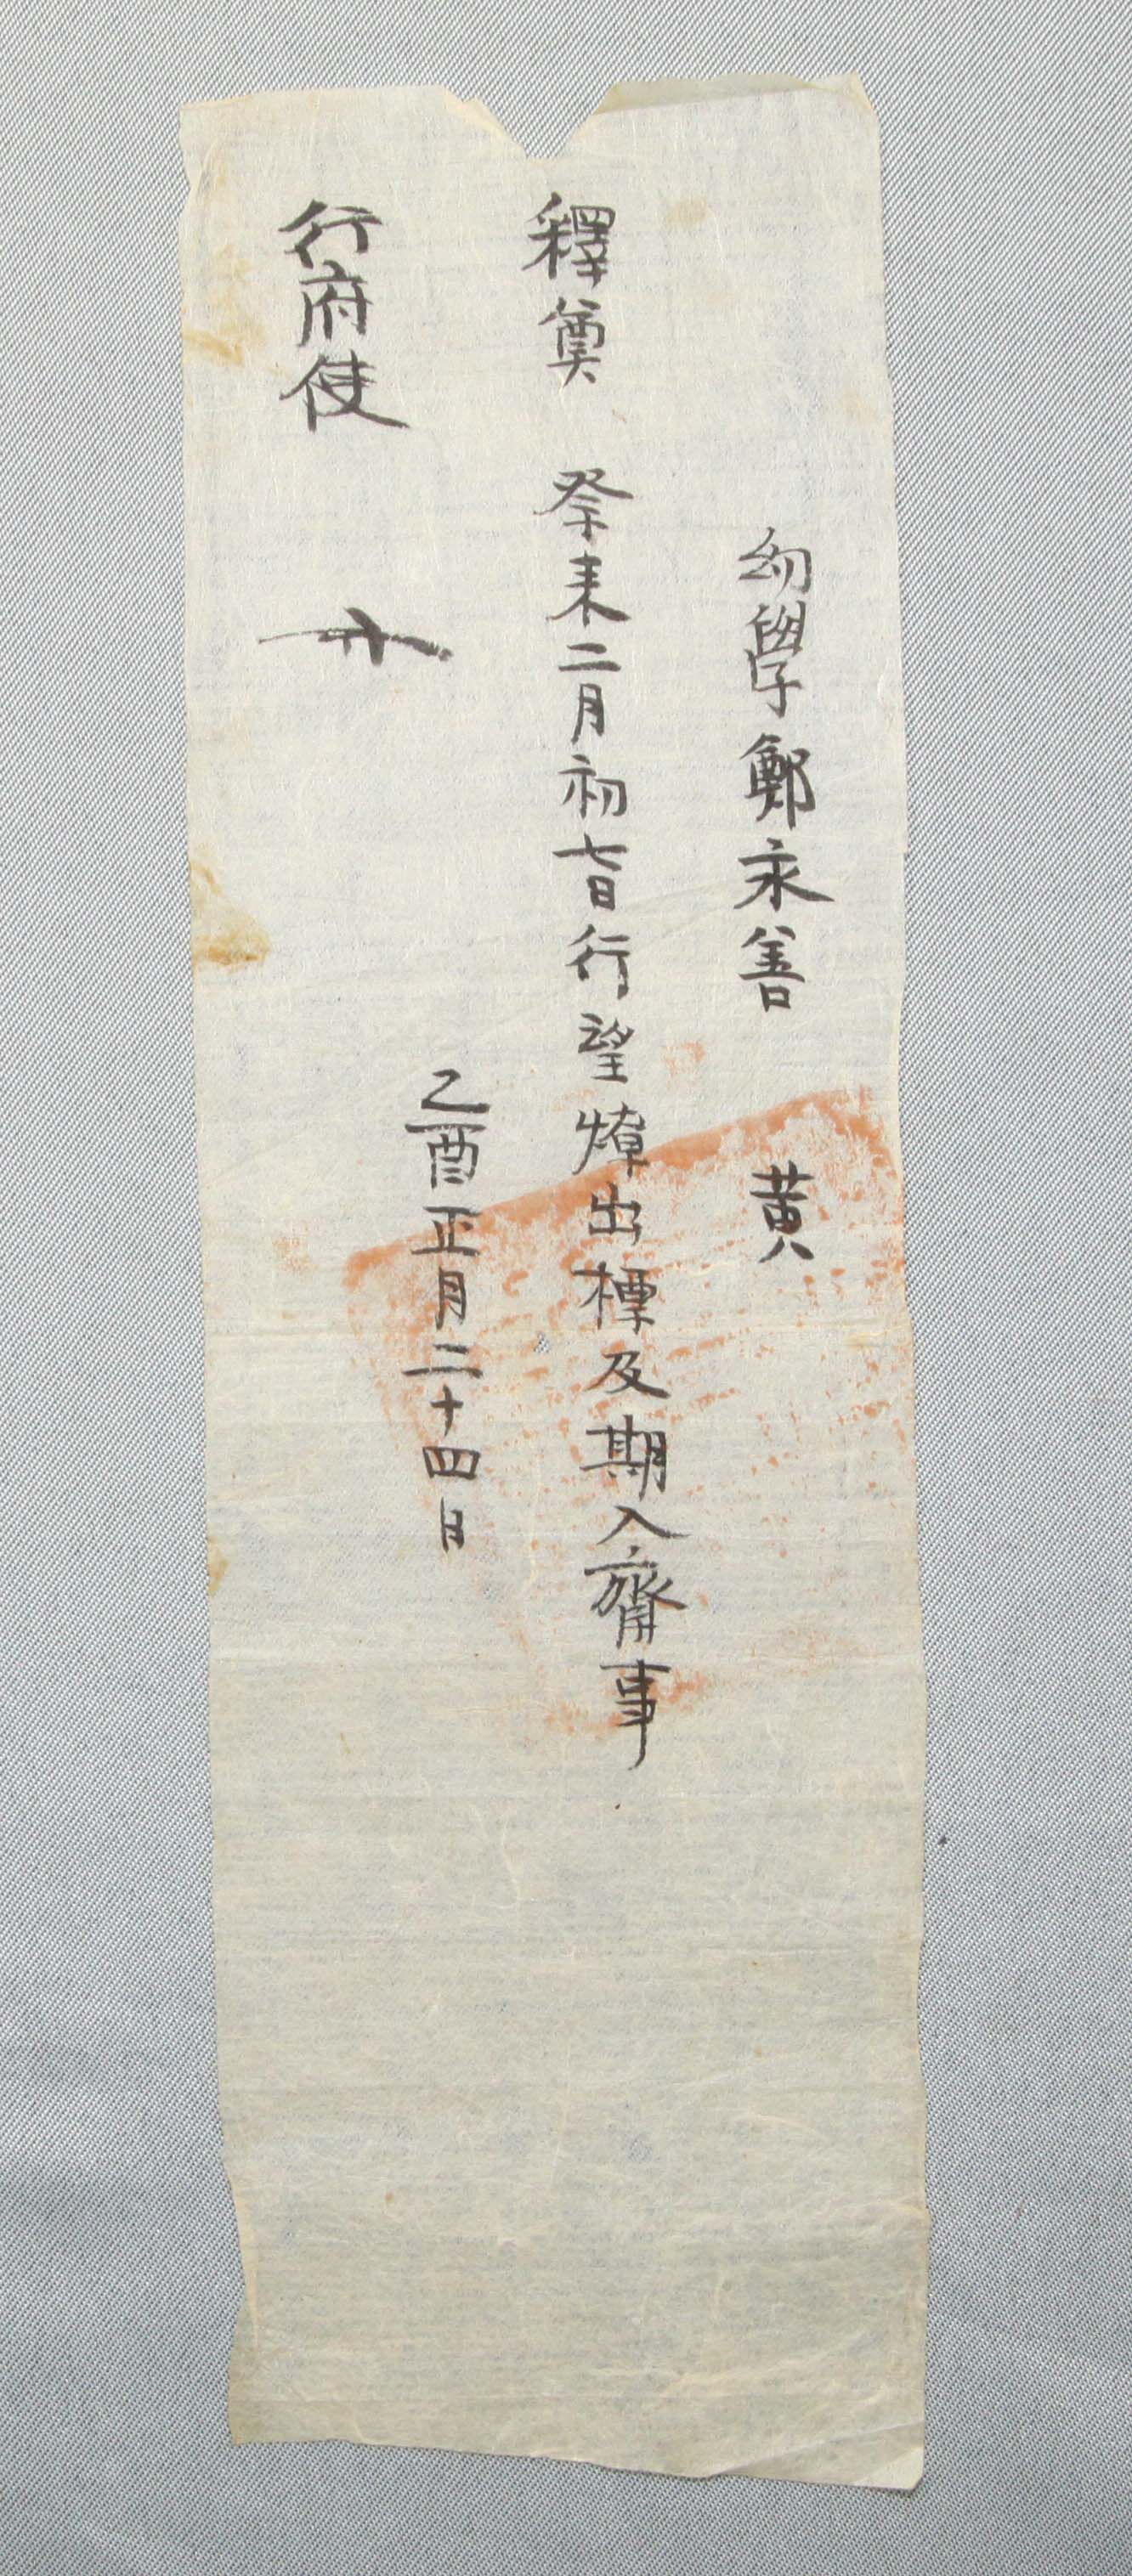 幼學鄭永善 黃
釋奠 祭来二月初七日行望燎出標及期入齋事
乙酉正月二十四日
行府使